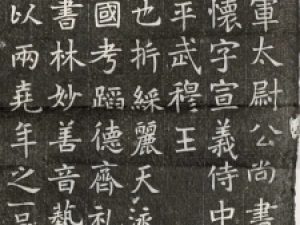 軍太尉公尚書
懷字宣義侍中
平武穆王
也折綵麗天派
國考蹈德齊礼
書林妙善音藝
以兩堯年之一